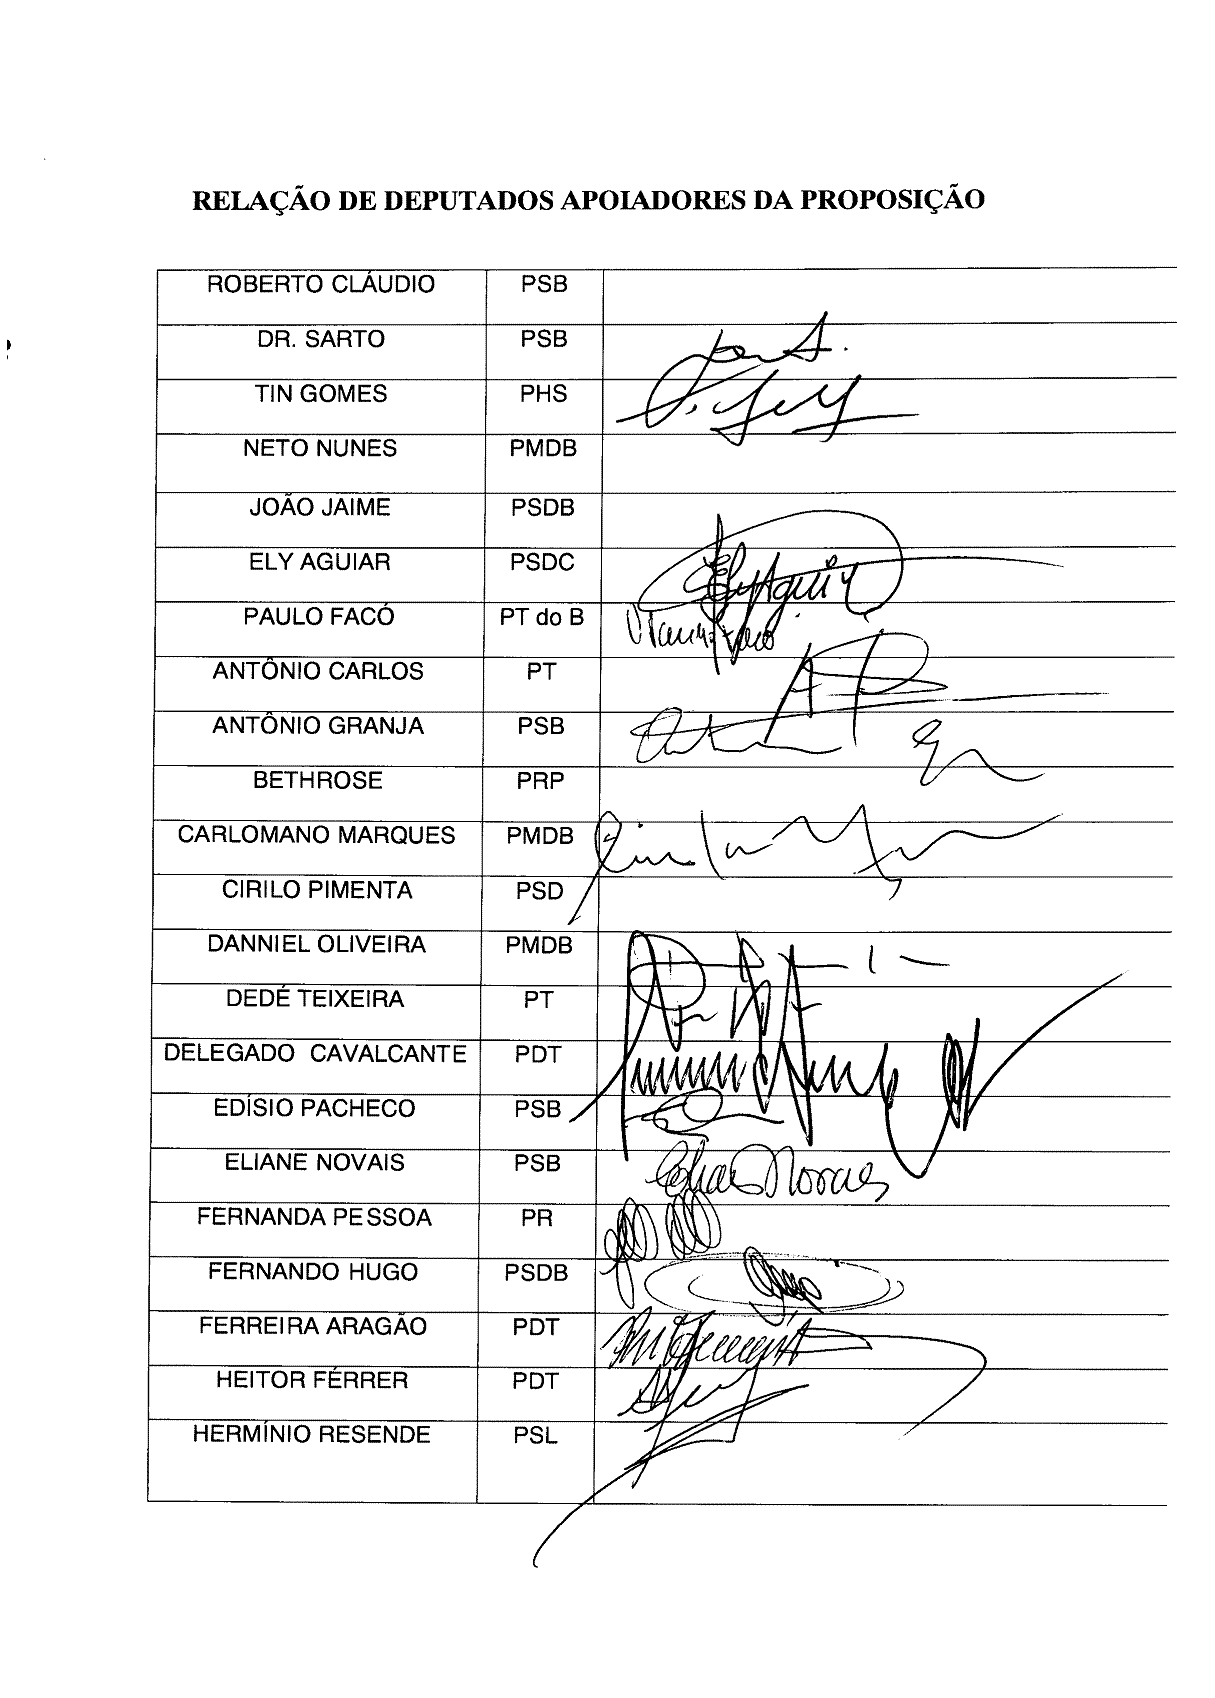 RELAÇÃO DE DEPUTADOS APOIADORES DA PROPOSIÇÃO
ROBERTO CLÁUDIO PSB
DR. SARTO PSB
TIN GOMES PHS
NETO NUNES PMDB
JOÃO JAIME PSDB
ELY AGUIAR PSDC
PAULO FACÓ PT do B
ANTÔNIO CARLOS PT
ANTÔNIO GRANJA PSB
BETHROSE PRP
CARLOMANO MARQUES PMDB
CIRILO PIMENTA PSD
DANNIEL OLIVEIRA PMDB
DEDÉ TEIXEIRA PT
DELEGADO CAVALCANTE PDT
EDÍSIO PACHECO PSB
ELIANE NOVAIS PSB
FERNANDA PESSOA PR
FERNANDO HUGO PSDB
FERREIRA ARAGÃO PDT
HEITOR FÉRRER PDT
HERMÍNIO RESENDE PSL